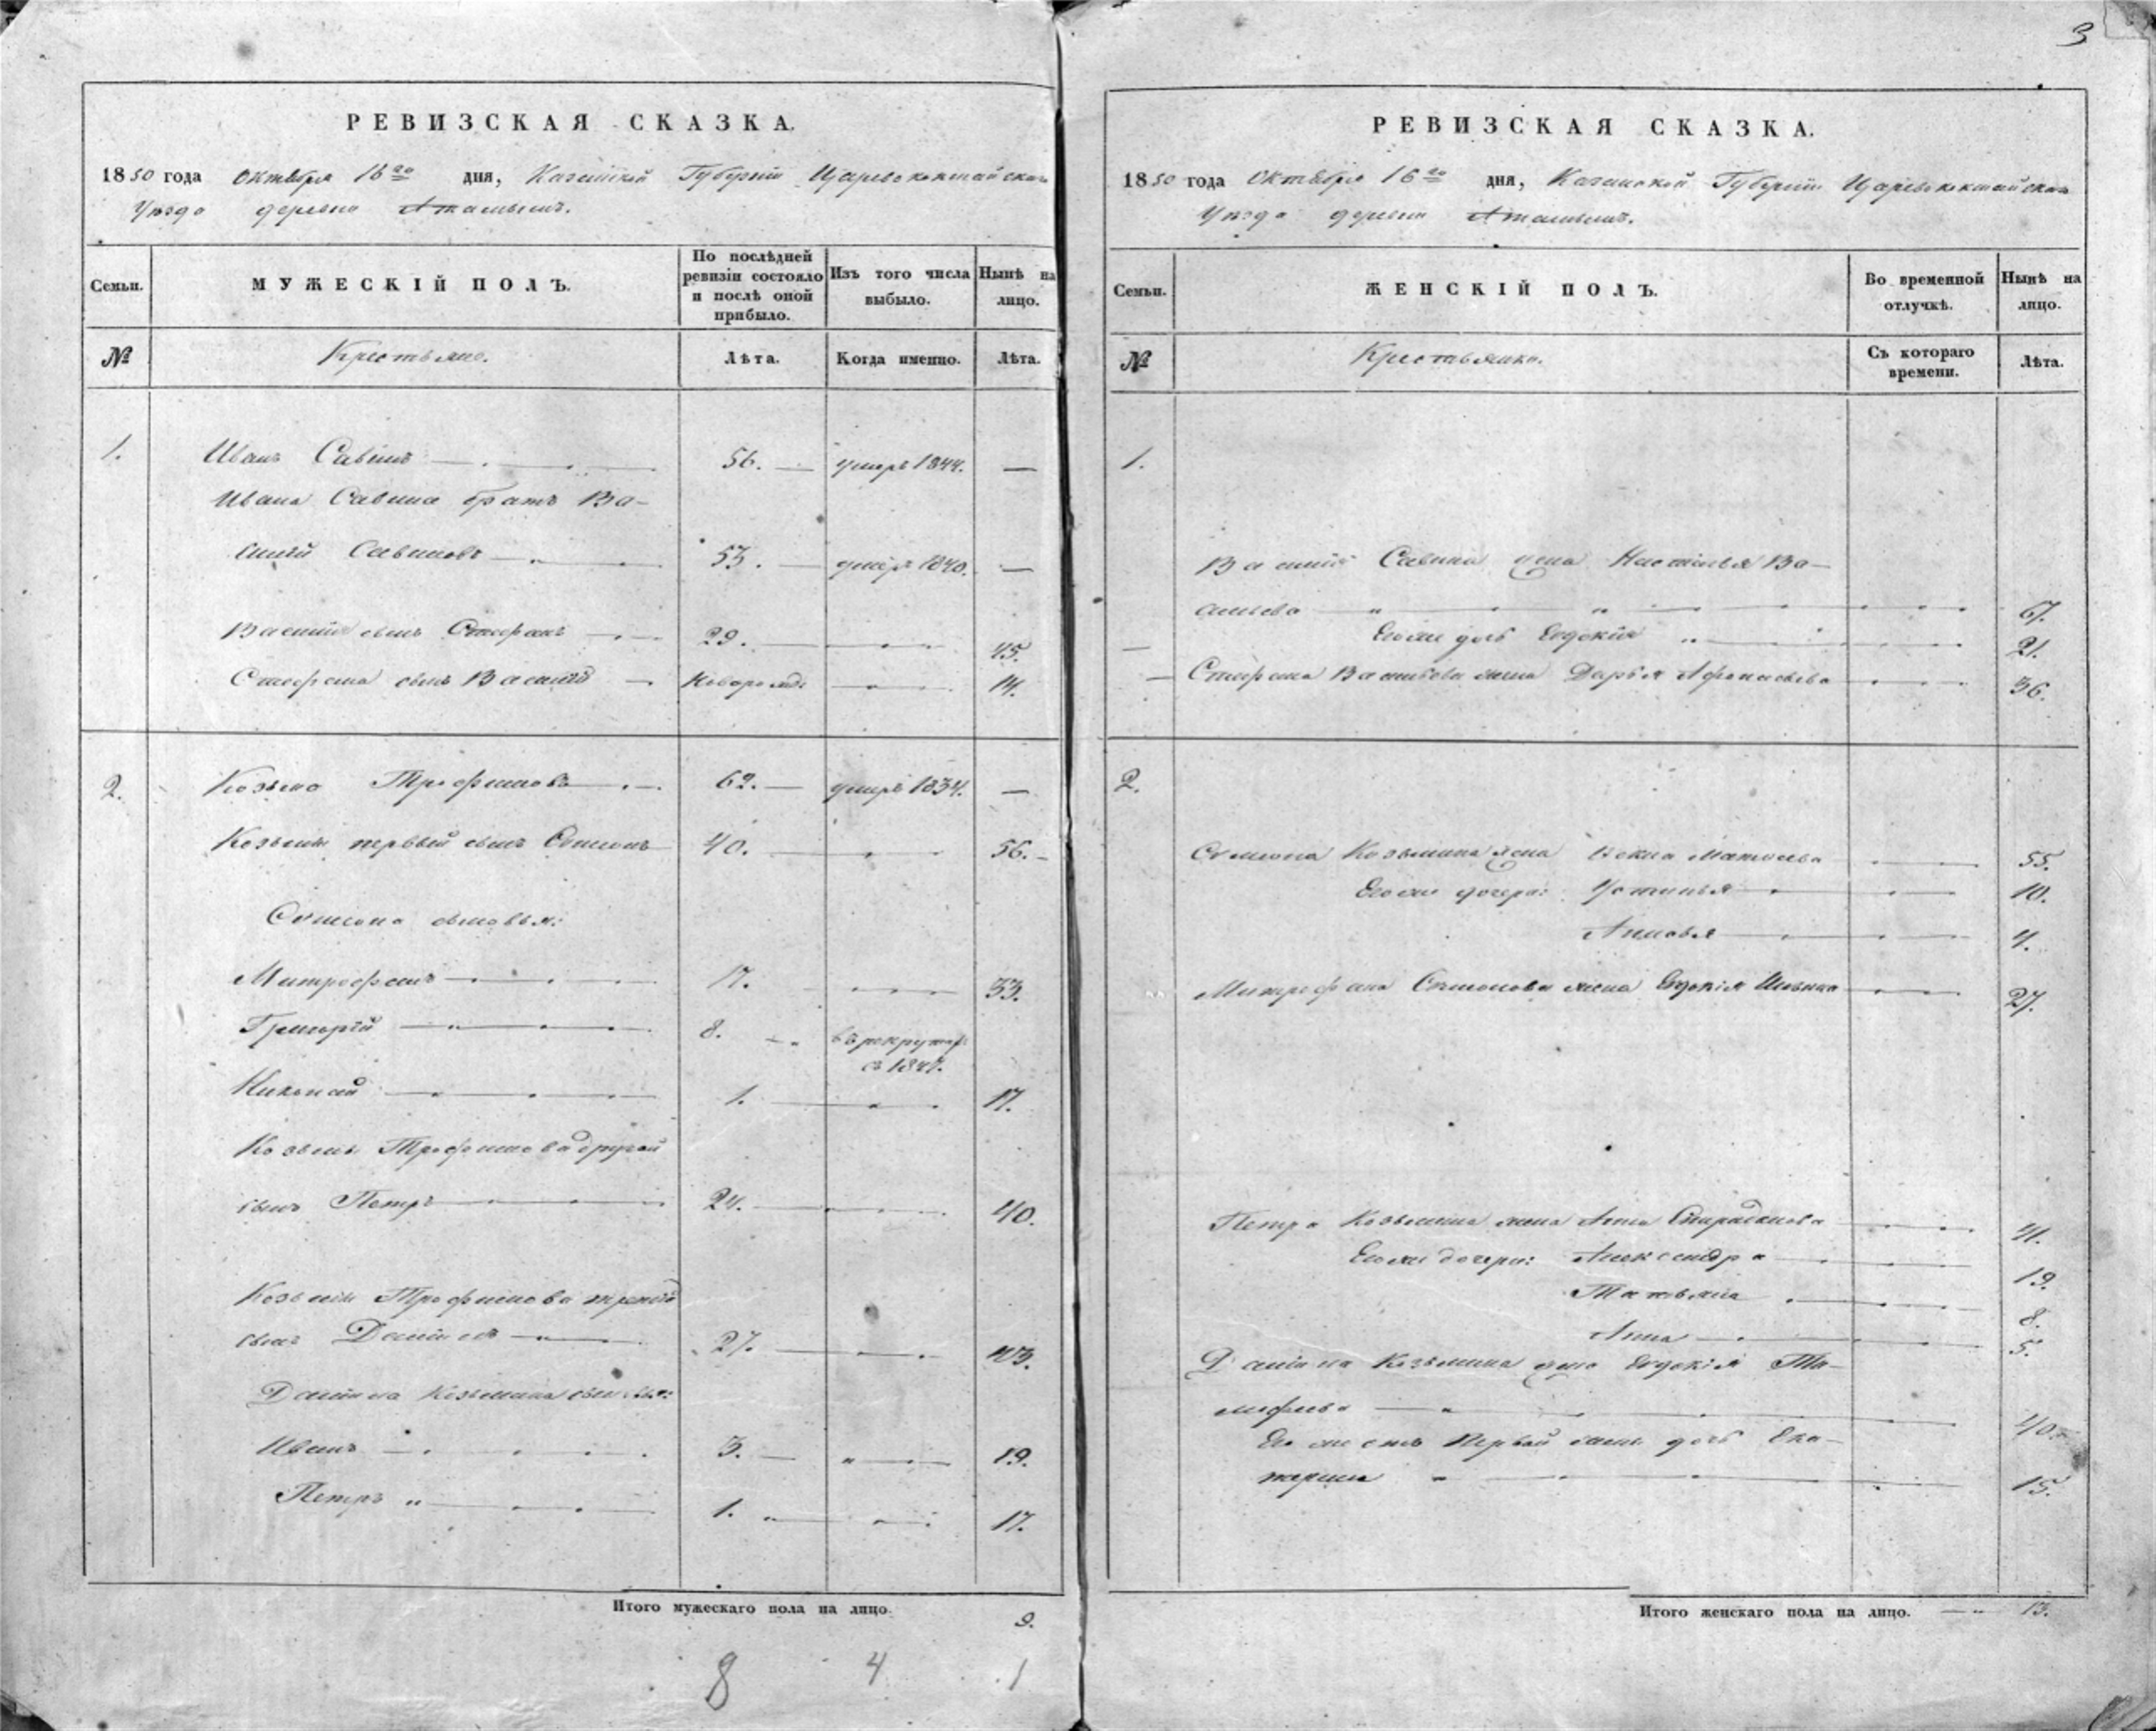 3
РЕВИЗСКАЯ СКАЗКА.
1850 года Октября 16го дня, Казанской Губернiи Царевококшайскаго
Уезда деревни
Семьи.
МУЖЕСКІЙ ПОЛЪ.
По послѣдней ревизіи состояло и послѣ оной прибыло.
Изъ того числа выбыло.
Нынѣ на лицо.
№
Крестьяне.
Лѣта.
Когда именно.
Лѣта.
1. Иванъ Савинъ 56. умеръ 1844. —
Ивана Савина братъ Ва-
силiй Савиновъ 53. умеръ 1840. —
Василiя сынъ Стефанъ 29. 45.
Стефана сынъ Василiй Новорожд. 14.
2. Козьма Трофимовъ 62. умеръ 1834. —
Козьмы первый сынъ Семионъ 40. 56.
Семиона сыновья:
Митрофанъ 17. 33.
Григорiй 8. въ рекрутах
съ 1847.
Николай 1. 17.
Козьмы Трофимова другой
сынъ Петръ 24. 40.
Козьмы Трофимова третiй
сынъ Данiилъ 27. 43.
Данiила Козьмина сыновья:
Иванъ 3. 19.
Петръ 1. 17.
Итого мужескаго пола на лицо. 9.
8 4 1
РЕВИЗСКАЯ СКАЗКА.
1850 года Октября 16го дня, Казанской Губернiи Царевококшайскаго
Уезда деревни
Семьи.
ЖЕНСКІЙ ПОЛЪ.
Во временной отлучкѣ.
Нынѣ на лицо.
№
Крестьянки.
Съ котораго времени.
Лѣта.
1.
Василiя Савина жена Настасья Ва-
сильева 67.
Его же дочь Евдокiя 21.
Стефана Васильева жена Дарья Афанасьева 36.
2.
Семиона Козьмина жена Матвеева 55.
Его же дочери: Устинья 10.
4.
Митрофана Семионова жена Евдокiя 27.
Петра Козьмина жена Анна Спиридонова 41.
Его же дочери: Александра 19.
Татьяна 8.
Анна 5.
Данiила Козьмина жена Евдокiя Ти-
мофеева 40.
Его же отъ первой жены дочь Ека-
терина 15.
Итого женскаго пола на лицо. 13.